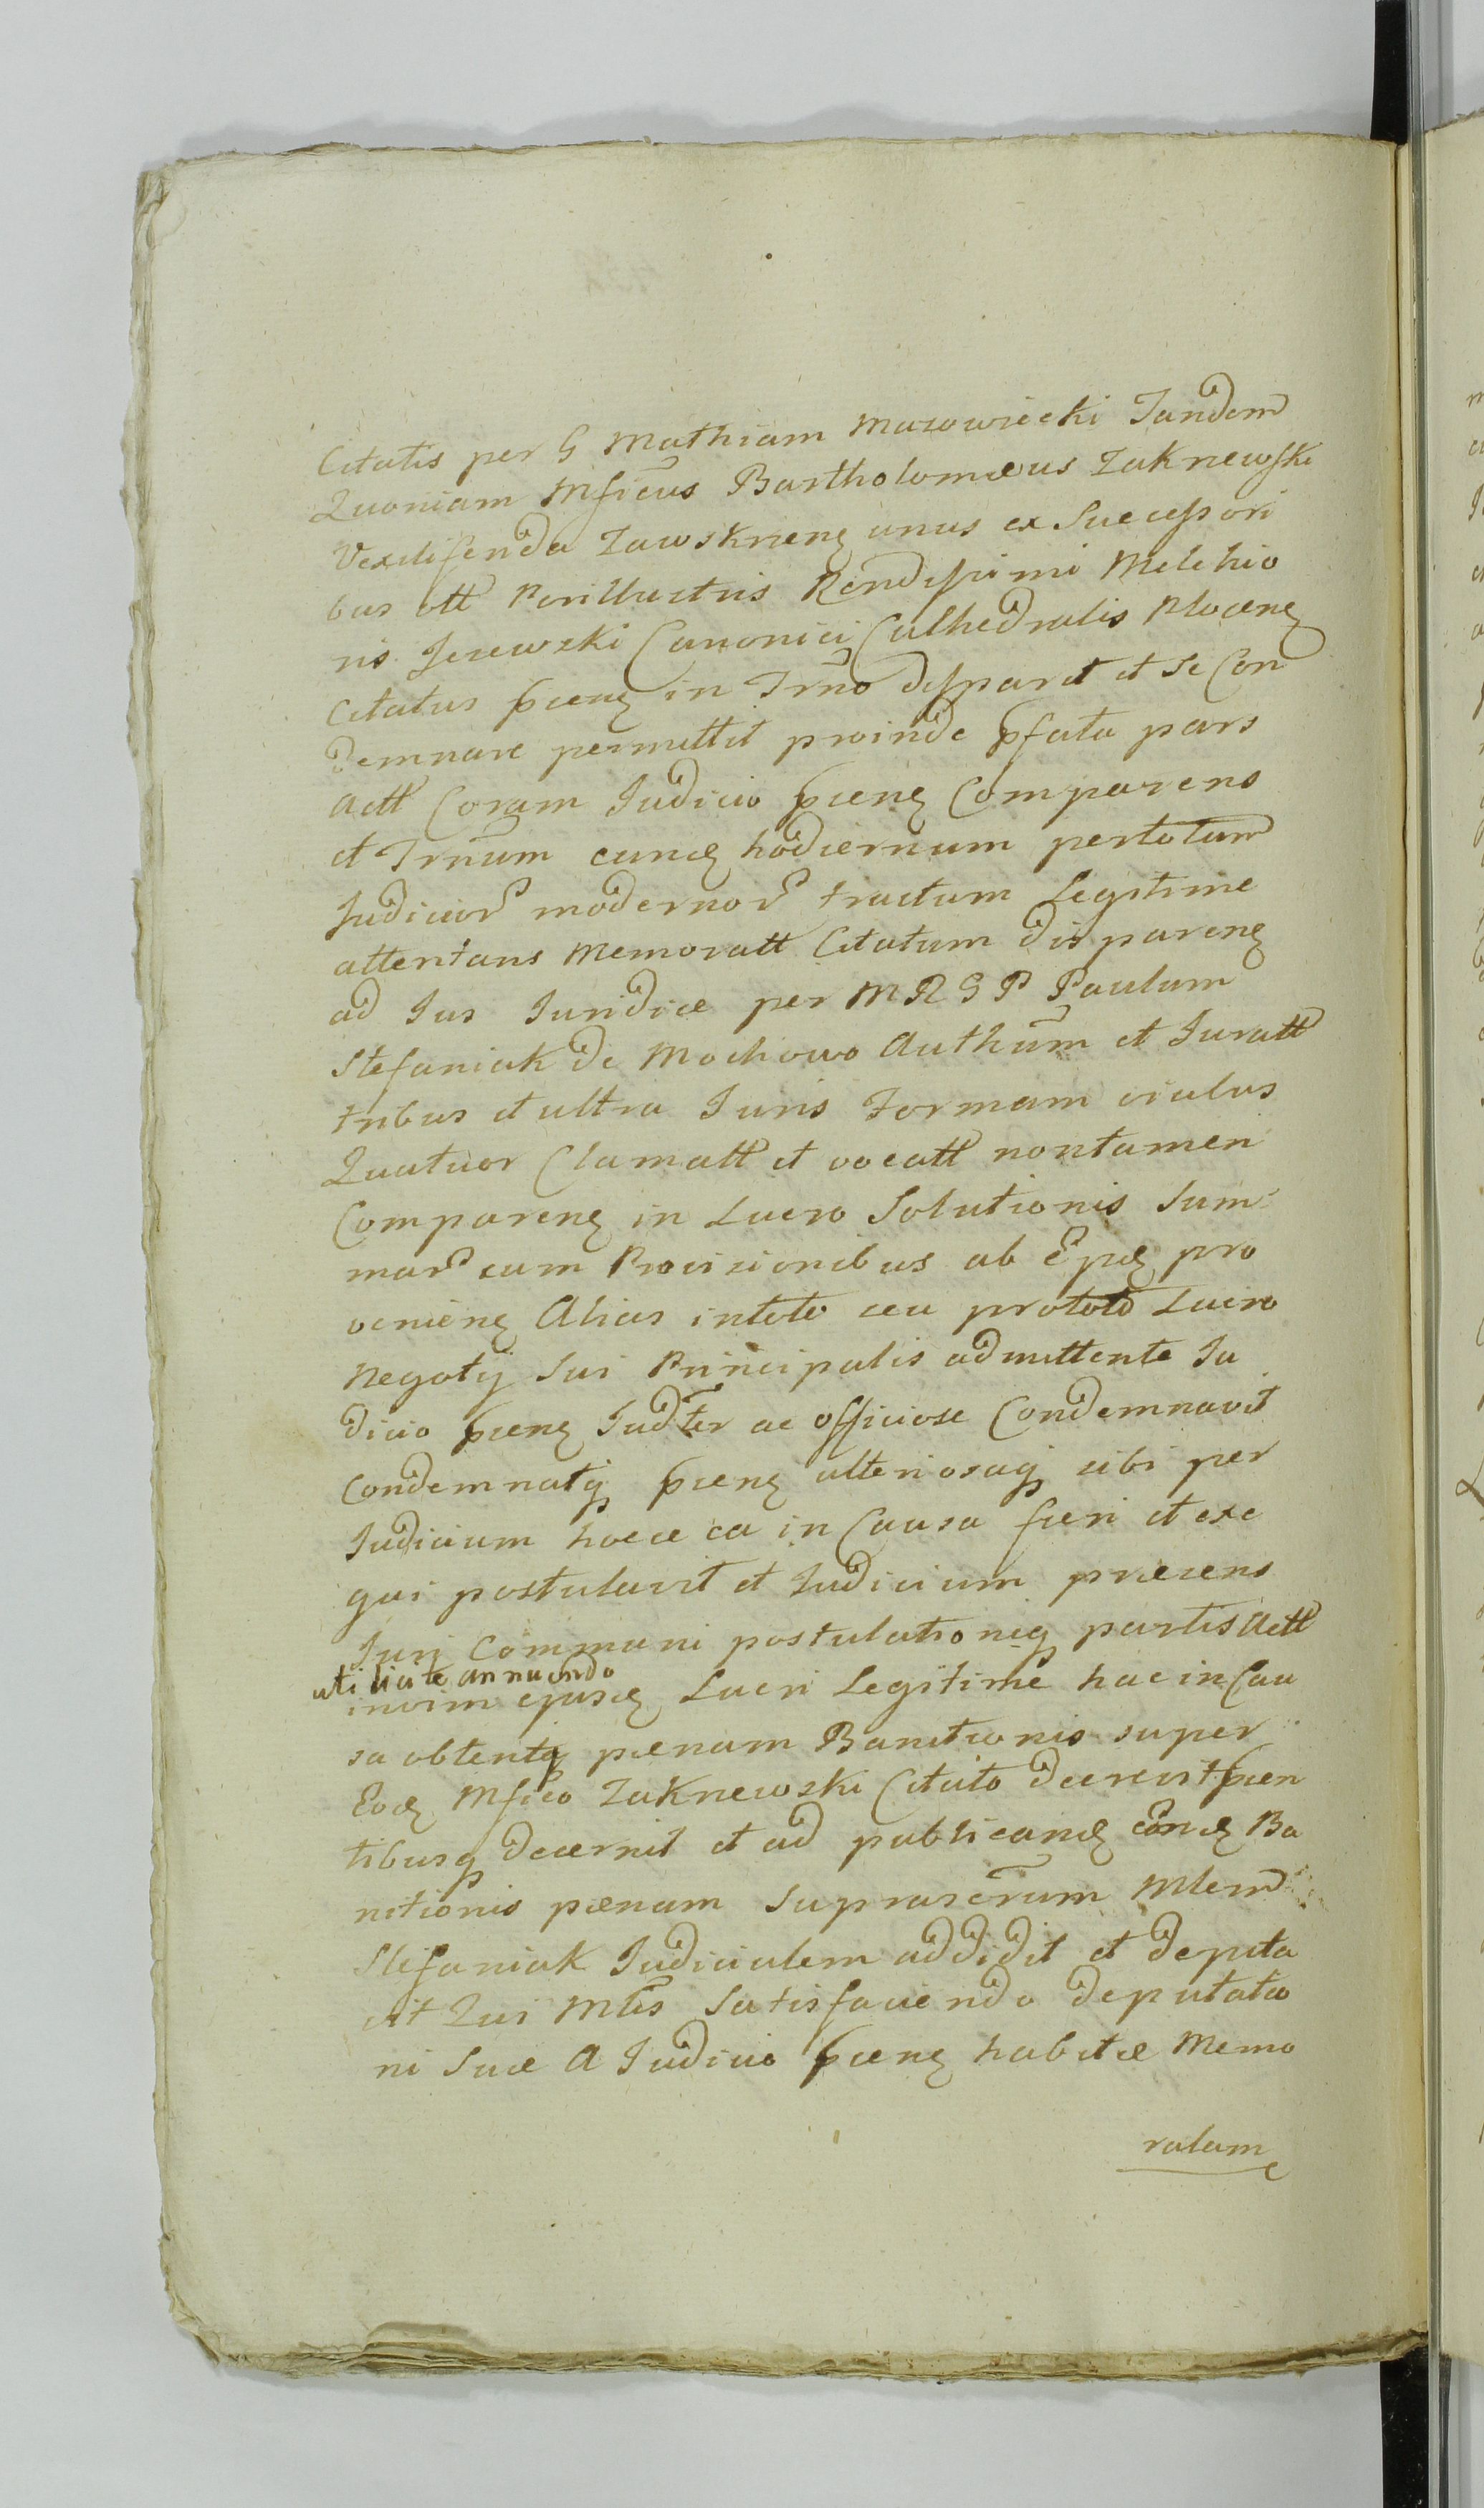 Citatis per G Mathiam Mazowiecki Tandem
Quoniam Mficus Bartholomæus Zaknewski
Vexilifenda Zawskrnen unus ex Successori
bus ott Perillustris Rendissimi Melchio
ris Jezewski Canonici Cathedralis Plocen
Citatus pñen in Trno disparet et se Con
demnare permittit proinde pfata pars
Actt Coram Judicio pñen Comparens
et Trnum eund hodiernum per totum
Judicior modernor tractum Legitime
attentans Memoratt Citatum disparen
ad Jus Juridice per M R G P Paulum
Stefaniak de Mochowo Authum et Juratt
tribus et ultra Juris Formam vicibus
Quatuor Clamatt et vocatt non tamen
Comparen in Lucro Solutionis Sum
mar cum Provisionibus ab Eisd pro
venien Alias in toto ceu pro toto Lucro
Negotij Sui Principalis admittente Ju
dicio pñen Judter ac officiose Condemnavit
Condemnatq pñen ulterioraq sibi per
Judicium hocce ea in Causa fieri et exe
qui postulavit et Judicium præsens
Juri Communi postulationiq partis Actt
uti licite annuendo
in vim ejusd Lucri Legitime hac in Cau
sa obtentq pænam Banitionis super
Eod Mfico Zaknewski Citato decrevit pñen
tibusq decernit et ad publicand eand Ba
nitionis pænam suprascrum Mlem
Stefaniak Judicialem addidit et deputa
vit Qui Mlis Satisfaciendo deputatio
ni Suæ A Judicio pñen habitæ Memo
ratam